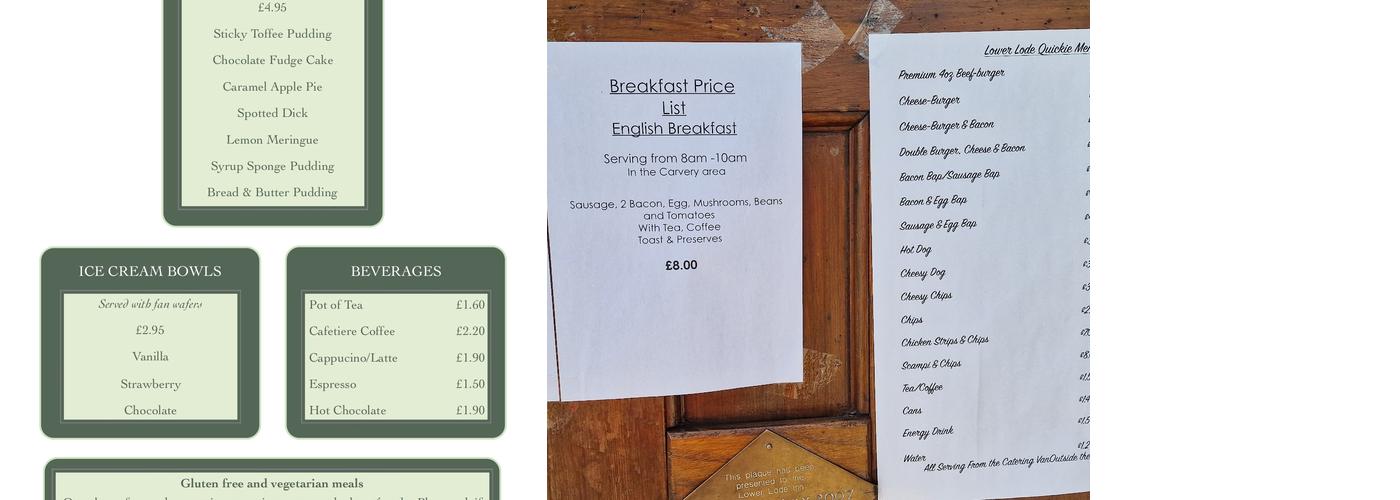 £4.95
Sticky Toffee Pudding
Chocolate Fudge Cake
Caramel Apple Pie
Spotted Dick
Lemon Meringue
Syrup Sponge Pudding
Bread & Butter Pudding
ICE CREAM BOWLS
Served with fan wafers
£2.95
Vanilla
Strawberry
Chocolate
BEVERAGES
Pot of Tea £1.60
Cafetiere Coffee £2.20
Cappucino/Latte £1.90
Espresso £1.50
Hot Chocolate £1.90
Gluten free and vegetarian meals
Breakfast Price
List
English Breakfast
Serving from 8am -10am
In the Carvery area
Sausage, 2 Bacon, Egg, Mushrooms, Beans
and Tomatoes
With Tea, Coffee
Toast & Preserves
£8.00
Lower Lode Quickie
Premium 4oz Beef-burger
Cheese-Burger
Cheese-Burger & Bacon
Double Burger, Cheese & Bacon
Bacon Bap/Sausage Bap
Bacon & Egg Bap
Sausage & Egg Bap
Hot Dog
Cheesy Dog
Cheesy Chips
Chips
Chicken Strips & Chips
Scampi & Chips
Tea/Coffee
Cans
Energy Drink
Water
All Serving From the Catering VanOutside the
This plaque has been
presented to the
Lower Lode Inn